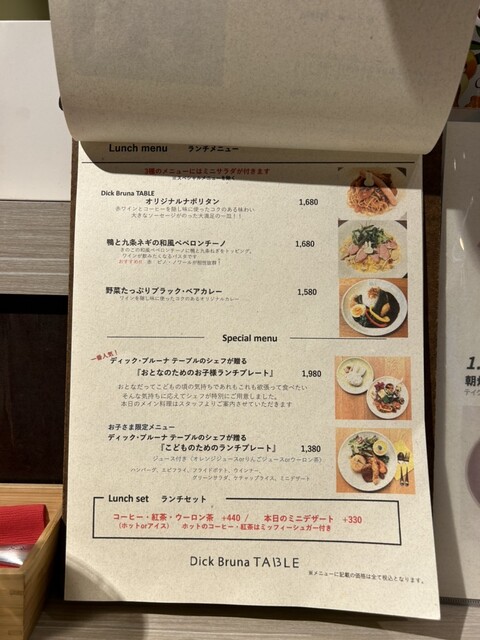 Lunch menu ランチメニュー
3種のメニューにはミニサラダが付きます
※スペシャルメニューを除く
Dick Bruna TABLE
オリジナルナポリタン 1,680
赤ワインとコーヒーを隠し味に使ったコクのある味わい
大きなソーセージがのった大満足の一皿！！
鴨と九条ネギの和風ペペロンチーノ 1,680
きのこの和風ペペロンチーノに鴨と九条ねぎをトッピング。
ワインが飲みたくなるパスタです
おすすめは 赤 ピノ・ノワールが相性抜群！
野菜たっぷりブラック・ベアカレー 1,580
ワインを隠し味に使ったコクのあるオリジナルカレー
Special menu
一番人気！
ディック・ブルーナ テーブルのシェフが贈る
『おとなのためのお子様ランチプレート』 1,980
おとなだってこどもの頃の気持ちであれもこれも欲張って食べたい
そんな気持ちに応えてシェフが特別にご用意しました。
本日のメイン料理はスタッフよりご案内させていただきます
お子さま限定メニュー
ディック・ブルーナ テーブルのシェフが贈る
『こどものためのランチプレート』 1,380
ジュース付き（オレンジジュースorりんごジュースorウーロン茶）
ハンバーグ、エビフライ、フライドポテト、ウインナー、
グリーンサラダ、ケチャップライス、ミニデザート
Lunch set ランチセット
コーヒー・紅茶・ウーロン茶 +440 / 本日のミニデザート +330
（ホットorアイス） ホットのコーヒー・紅茶はミッフィーシュガー付き
Dick Bruna TABLE
※メニューに記載の価格は全て税込となります。